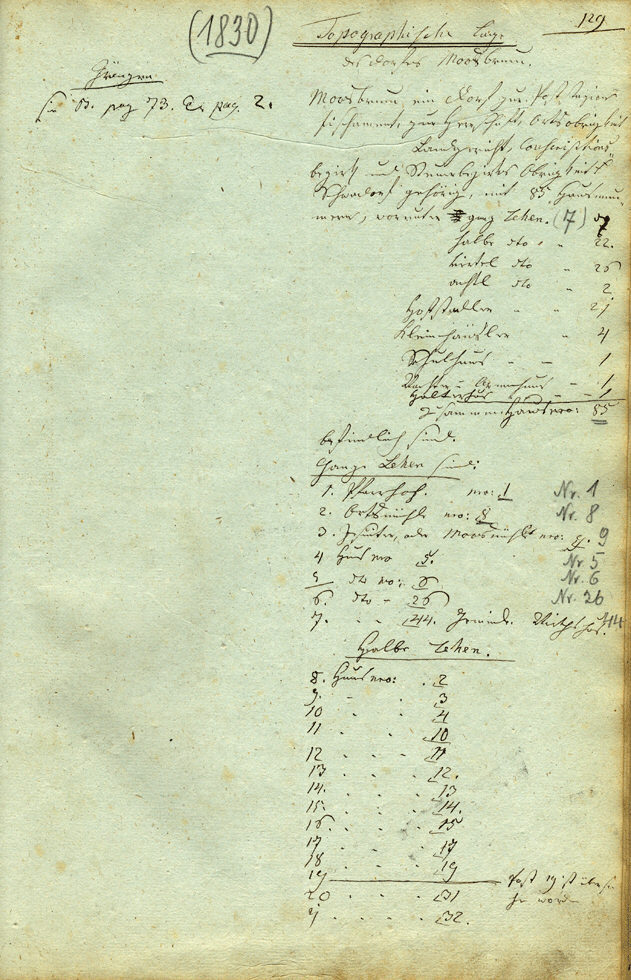 (1830)
129
Topographische Lage
des Dorfes Moosbrunn.
Gränzen
B. pag 73. & pag. 2.
Moosbrunn, ein Dorf zur Post Station
Fischament, zur Herrschaft, Ortsobrigkeit
Landgericht, Conscriptions
bezirk und Steuerbezirks Obrigkeit
Schwadorf gehörig, mit 85 Hausnum
mern, worunter ganz Lehen. (7) 7
halbe dto " 22.
viertel dto " 26
achtl dto " 2
Hofstadler " " 21
Kleinhäusler " 4
Schulhaus - - 1
Wächter u Armenhaus - 1
Halterhaus - - 1
Zusammen Hausnro: 85
befindlich sind.
Ganze Lehen sind:
1. Pfarrhof. nro: 1 Nr. 1
2. Ortsmühle nro: 8 Nr. 8
3. oder Moosmühle nro: 9. 9
4 Haus nro 5. Nr. 5
5 dto no: 6 Nr. 6
6. dto - 26 Nr. 26
7. " " 44. Gemeinde Wirthshaus. 44
Halbe Lehen.
8. Haus nro: . 2
9. - . 3
10 . . 4
11 . . 10
12 . . . 11
13 . . . 12.
14. . . . 13
15. . . . 14.
16. . . . 15
17 . . . 17
18 . . . 19
19 Post 19 ist überse
20 . . . 31 he worden
21 . . . 32.